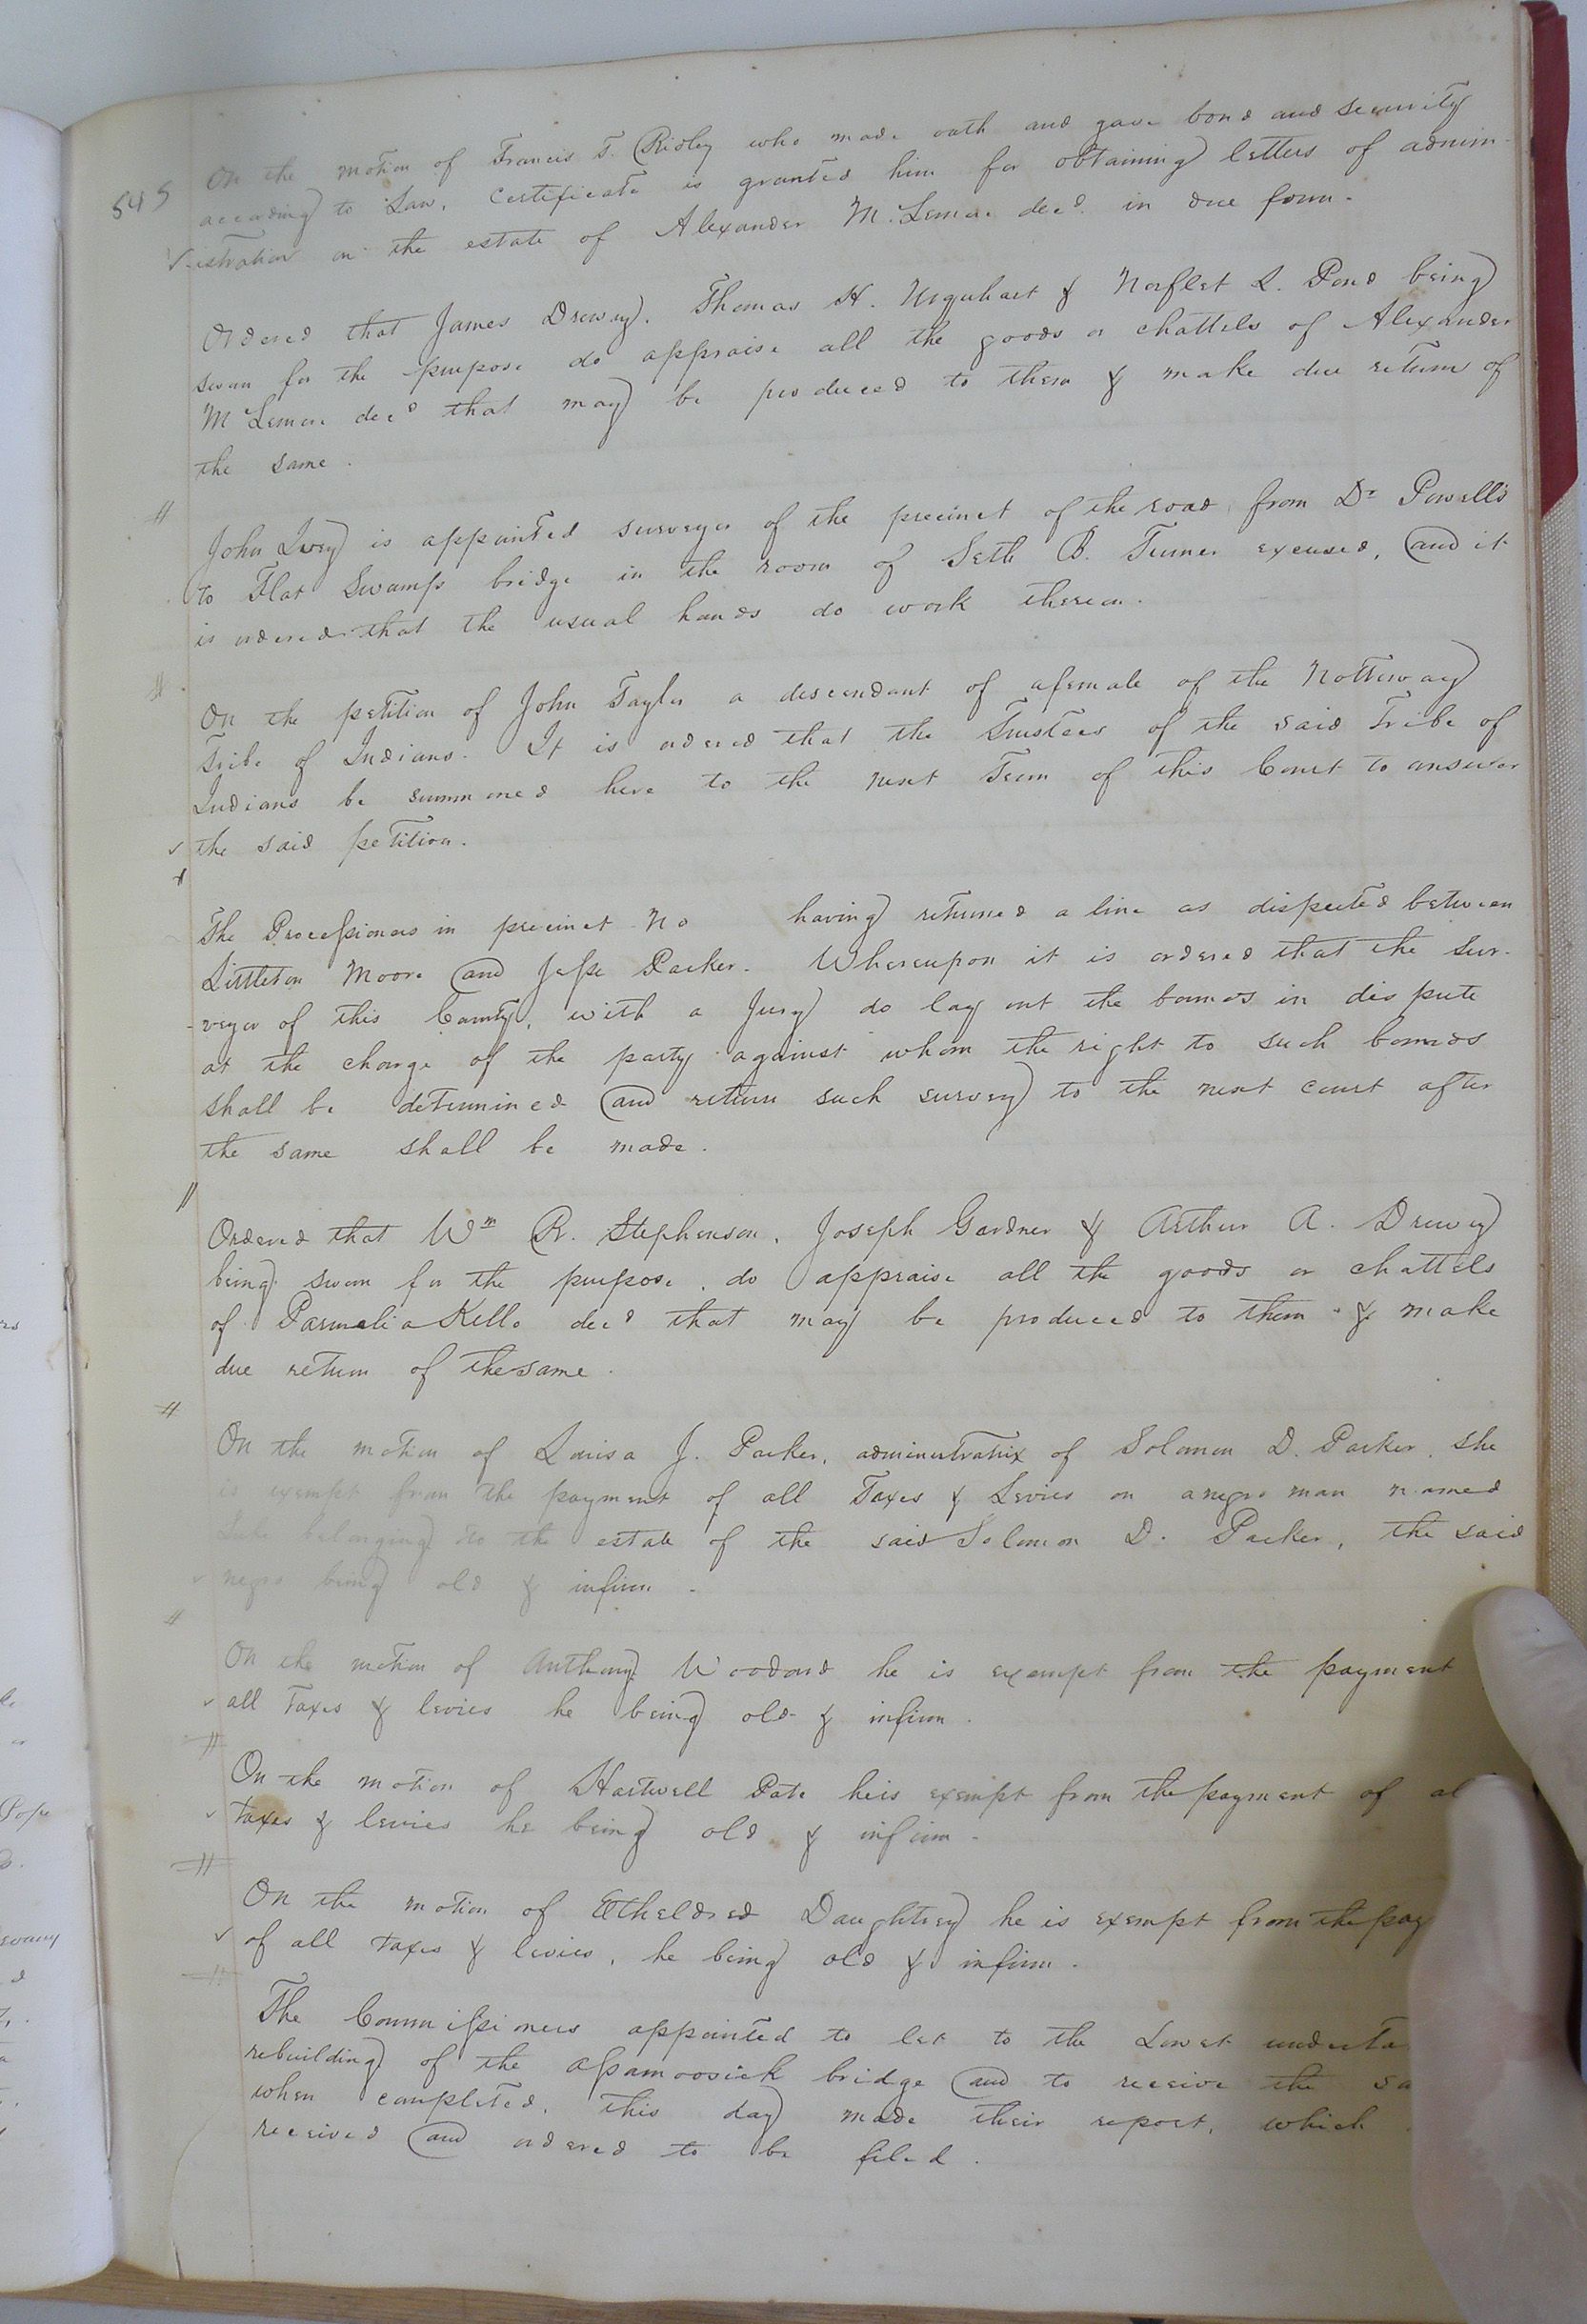 545
On the motion of Francis T. Ridley who made oath and gave bond and security
according to Law, Certificate is granted him for obtaining letters of admin-
istration on the estate of Alexander M. Lemore decd. in due form.
Ordered that James Drewry, Thomas H. Urquhart & Norflet L. Pond being
sworn for the purpose do appraise all the goods or chattels of Alexander
M Lemore decd that may be produced to them & make due return of
the same.
John Ivey is appointed surveyor of the precinct of the road from Dr Powell's
to Flat Swamp bridge in the room of Seth B. Turner excused, and it
is ordered that the usual hands do work thereon.
On the petition of John Taylor a descendant of a female of the Nottoway
Tribe of Indians. It is ordered that the Trustees of the said Tribe of
Indians be summoned here to the next Term of this Court to answer
the said petition.
The Processioners in precinct No having returned a line as disputed between
Littleton Moore and Jesse Parker. Whereupon it is ordered that the Sur-
-veyor of this County, with a Jury do lay out the bounds in dispute
at the charge of the party against whom the right to such bounds
shall be determined and return such survey to the next court after
the same shall be made.
Ordered that Wm R. Stephenson, Joseph Gardner & Arthur A. Drewry
being sworn for the purpose, do appraise all the goods or chattels
of Parmelia Kello decd that may be produced to them & make
due return of the same.
On the motion of Louisa J. Parker, administratrix of Solomon D. Parker, she
is exempt from the payment of all Taxes & Levies on a negro man named
belonging to the estate of the said Solomon D. Parker, the said
negro being old & infirm.
On the motion of Anthony Woodard he is exempt from the payment
all Taxes & levies he being old & infirm.
On the motion of Hartwell Pate he is exempt from the payment of al
Taxes & levies he being old & infirm.
On the motion of Etheldred Daughtrey he is exempt from the pay
of all taxes & levies, he being old & infirm.
The Commissioners appointed to let to the Lowest underta
rebuilding of the assamoosick bridge and to receive the sa
when completed, this day made their report, which
received and ordered to be filed.
Pope